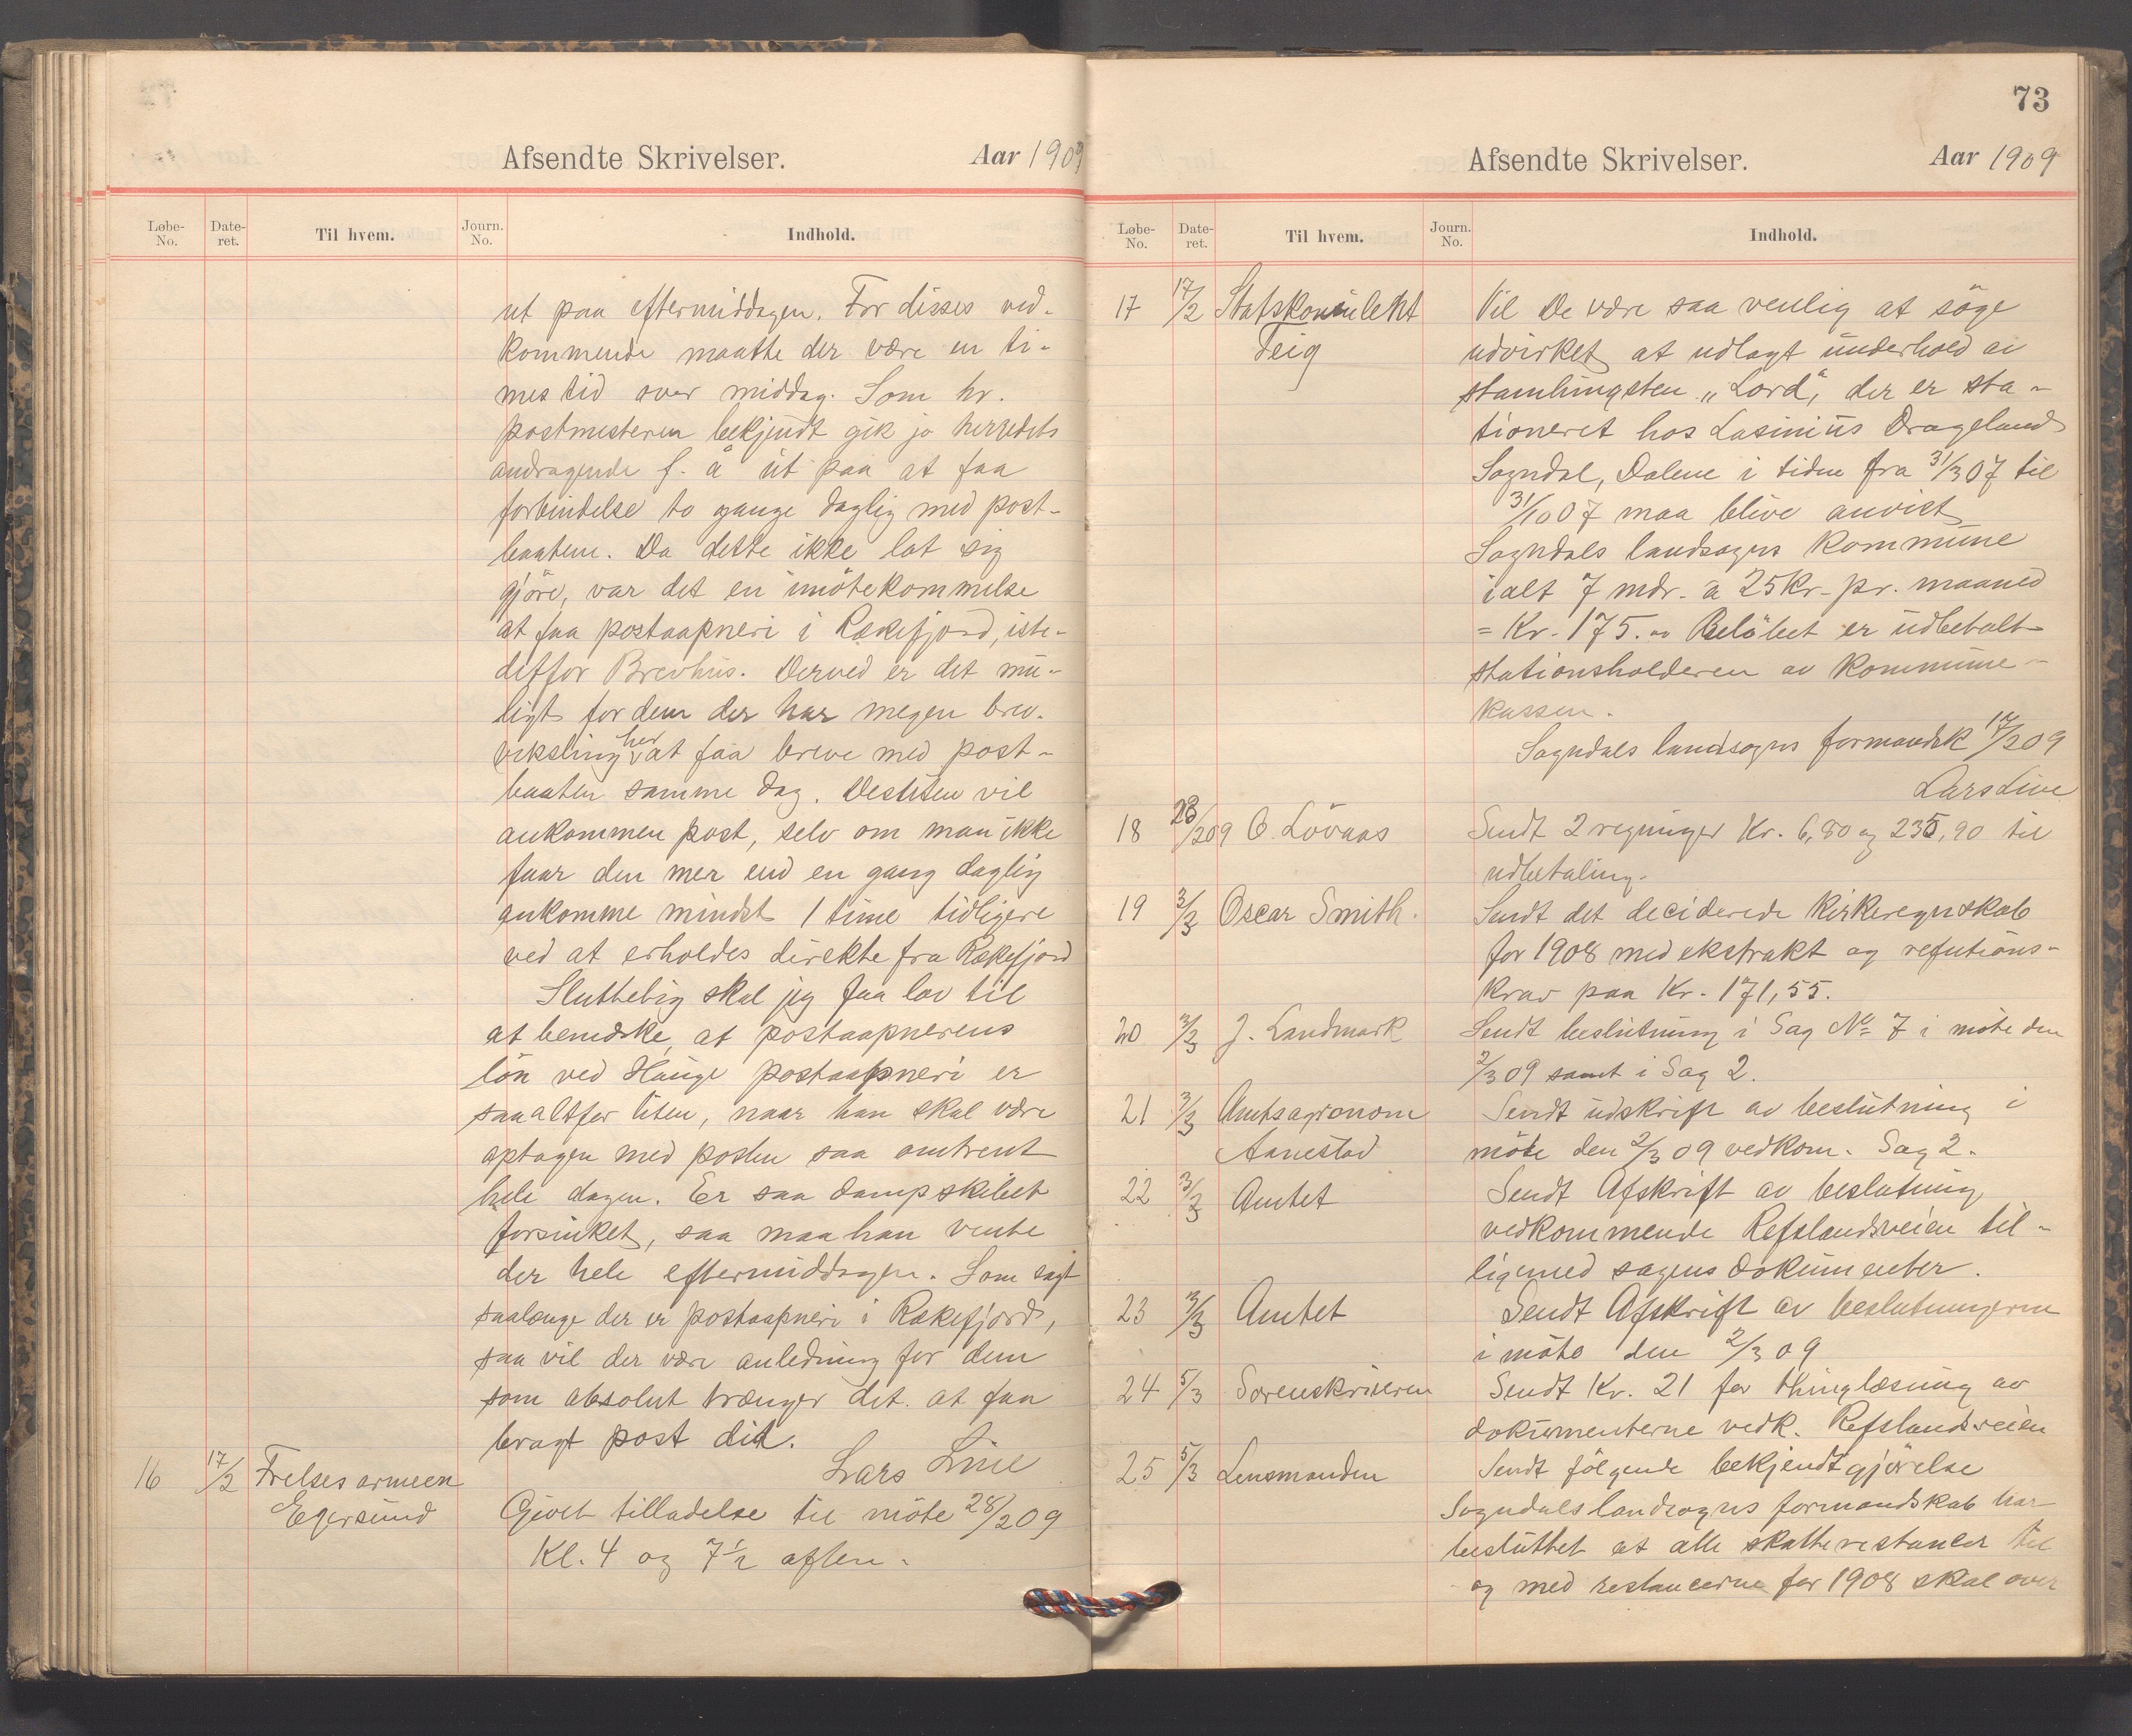 Afsendte Skrivelser. Aar 1909
Løbe-No. Date-ret. Til hvem. Journ. No. Indhold.
ut paa eftermiddagen. For disses ved-
kommende maatte der være en ti-
mes tid over middag. Som hr.
postmesteren bekjendt gik jo herredets
andragende f. å ut paa at faa
forbindelse to gange daglig med post-
baaten. Da dette ikke lot sig
gjøre, var det en imötekommelse
at faa postaapneri i Rækefjord, iste-
detfor Brevhus. Derved er det mu-
ligt for dem der har megen brev-
veksling her at faa breve med post-
baaten samme dag. Desuten vil
ankommen post, selv om man ikke
faar den mer end en gang daglig
ankomme mindst 1 time tidligere
ved at erholdes direkte fra Rækefjord
Sluttelig skal jeg faa lov til
at bemærke, at postaapnerens
lön ved Hauge postaapneri er
saa altfor liten, naar han skal være
optagen med posten saa omtrent
hele dagen. Er saa dampskibet
forsinket, saa maa han vente
der hele eftermiddagen. Som sagt
saalænge der er postaapneri i Rækefjord,
saa vil der være anledning for dem
som absolut trænger det at faa
bragt post did.
Lars Line
16 17/2 Frelsesarmeen Givet tilladelse til möte 28/2 09
Egersund Kl. 4 og 7 1/2 aften.
73
Afsendte Skrivelser. Aar 1909
Løbe-No. Date-ret. Til hvem. Journ. No. Indhold.
17 17/2 Statskonsulent Vil De være saa venlig at söge
Feig udvirket at udlagt underhold av
stamhingsten „Lord“, der er sta-
tioneret hos Lasinius Drageland
Sogndal, Dalene i tiden fra 31/3 07 til
31/10 07 maa blive anvist
Sogndals landsogns kommune
ialt 7 mdr. a 25 Kr. pr. maaned
= Kr. 175. Belöbet er udbetalt
stationsholderen av kommune-
kassen.
Sogndals landsogns formandsk 17/2 09
Lars Line
18 23/2 09 O. Lövaas Sendt 2 regninger Kr. 6,80 og 235,90 til
udbetaling.
19 3/3 Oscar Smith. Sendt det deciderede kirkeregnskab
for 1908 med ekstrakt og refutions-
krav paa Kr. 171,55.
20 3/3 J. Landmark Sendt beslutning i Sag No 7 i möte den
2/3 09 samt i Sag 2.
21 3/3 Amtsagronom Sendt udskrift av beslutning i
Aanestad möte den 2/3 09 vedkom. Sag 2.
22 3/3 Amtet Sendt Afskrift av beslutning
vedkommende Refslandsveien til-
ligemed sagens dokumenter.
23 3/3 Amtet Sendt Afskrift av beslutningerne
i möte den 2/3 09
24 5/3 Sorenskriveren Sendt Kr. 21 for thinglæsning av
dokumenterne vedk. Refslandsveien
25 5/3 Lensmanden Sendt fölgende bekjendtgjörelse
Sogndals landsogns formandskab har
besluttet at alle skatterestancer til
og med restancerne for 1908 skal over